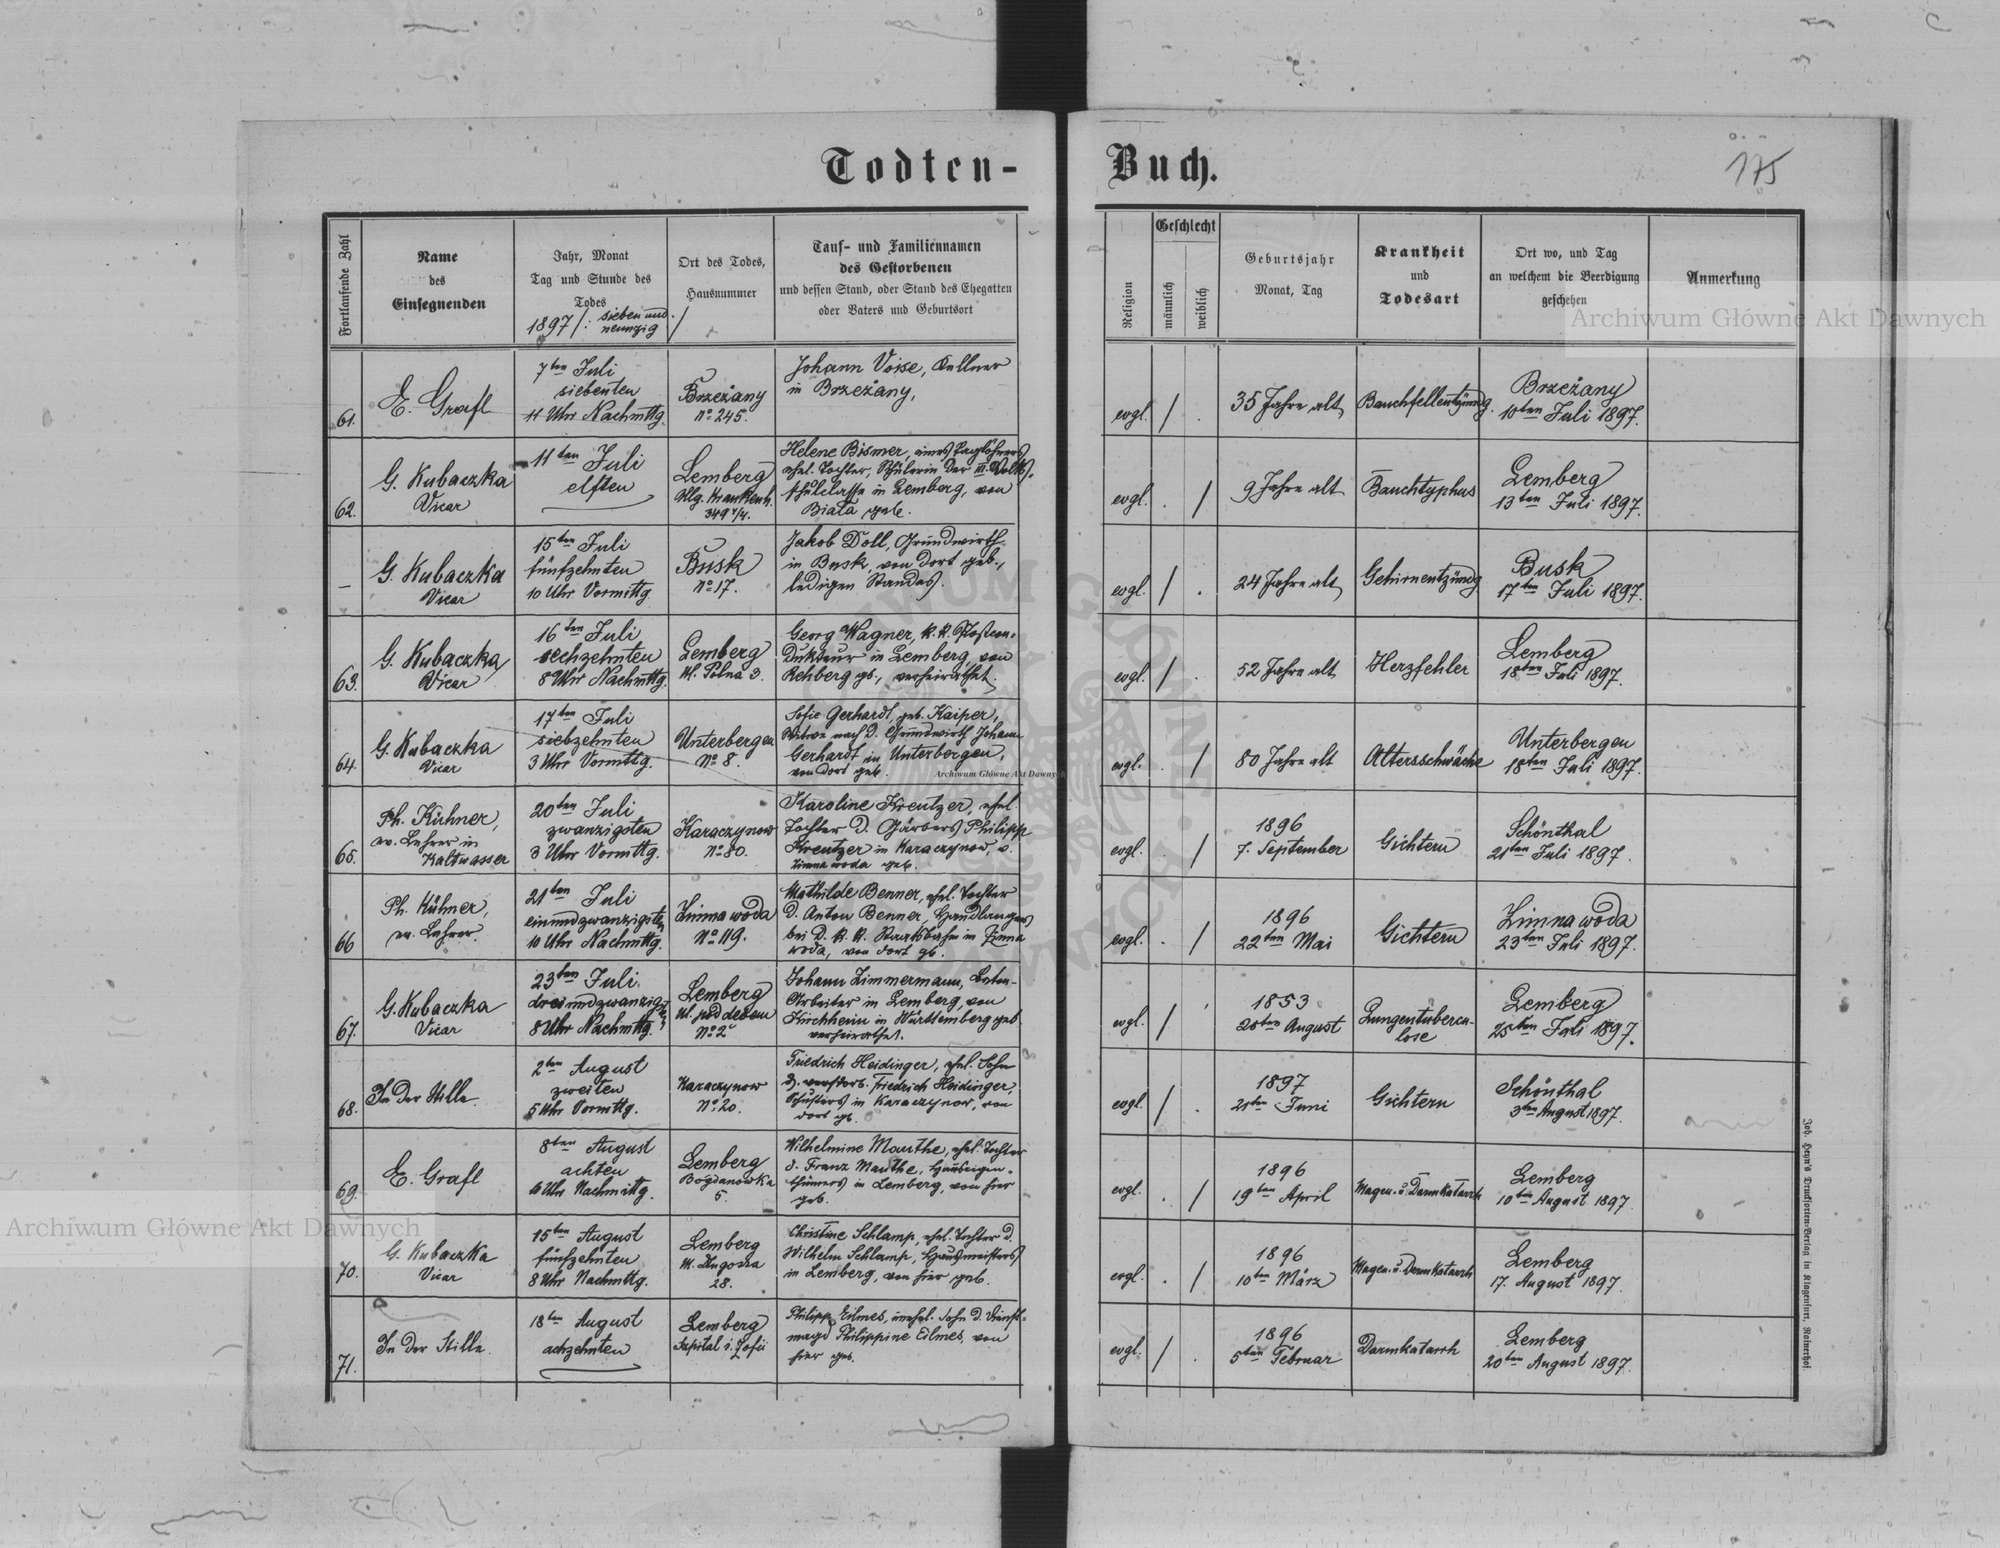 Todten-Buch.
175
Fortlaufende Zahl
Name
des
Einsegnenden
Jahr, Monat
Tag und Stunde des
Todes
1897 /: sieben und
neunzig /
Ort des Todes,
Hausnummer
Tauf- und Familiennamen
des Gestorbenen
und dessen Stand, oder Stand des Ehegatten
oder Vaters und Geburtsort
Religion
Geschlecht
männlich
weiblich
Geburtsjahr
Monat, Tag
Krankheit
und
Todesart
Ort wo, und Tag
an welchem die Beerdigung
geschehen
Anmerkung
61.
E. Grafl
7ten Juli
siebenten
11 Uhr Nachmttg.
Brzeżany
No 245.
Johann Voise, Kellner
in Brzeżany,
evgl.
/
.
35 Jahre alt
Bauchfellentzündg.
Brzeżany
10ten Juli 1897.
62.
G. Kubaczka
Vicar
11ten Juli
elften
Lemberg
Allg. Krankenh.
349 4/4.
Helene Bismer, eines Taglöhners
ehel. Tochter, Schülerin der III. Volks-
schulclasse in Lemberg, von
Biała geb.
evgl.
.
/
9 Jahre alt
Bauchtyphus
Lemberg
13ten Juli 1897.
–
G. Kubaczka
Vicar
15ten Juli
fünfzehnten
10 Uhr Vormttg
Busk
No 17.
Jakob Doll, Grundwirth
in Busk, von dort geb.,
ledigen Standes.
evgl.
/
.
24 Jahre alt
Gehirnentzündg
Busk
17ten Juli 1897.
63.
G. Kubaczka
Vicar
16ten Juli
sechzehnten
8 Uhr Nachmttg.
Lemberg
Ul. Polna 3.
Georg Wagner, k. k. Postcon-
dukteur in Lemberg, von
Rehberg gb., verheirathet.
evgl.
/
.
52 Jahre alt
Herzfehler
Lemberg
18ten Juli 1897.
64.
G. Kubaczka
Vicar
17ten Juli
siebzehnten
3 Uhr Vormttg.
Unterbergen
No 8.
Sofie Gerhardt, geb. Kaiper,
Witwe nach d. Grundwirth Johann
Gerhardt in Unterbergen,
von dort geb.
evgl.
.
/
80 Jahre alt
Altersschwäche
Unterbergen
18ten Juli 1897.
65.
Ph. Kühner,
ev. Lehrer in
Kaltwasser
20ten Juli
zwanzigsten
3 Uhr Vormttg.
Karaczynow
No 80.
Karoline Kreutzer, ehel.
Tochter d. Gärbers Philipp
Kreutzer in Karaczynow, v.
Zimna woda geb.
evgl.
.
/
1896
7. September
Gichtern
Schönthal
21ten Juli 1897.
66
Ph. Kühner,
ev. Lehrer.
21ten Juli
einundzwanzigsten
10 Uhr Nachmttg.
Zimna woda
No 119.
Mathilde Benner, ehel. Tochter
d. Anton Benner, Handlangers
bei d. k. k. Staatsbahn in Zimna
woda, von dort gb.
evgl.
.
/
1896
22ten Mai
Gichtern
Zimna woda
23ten Juli 1897.
67.
G. Kubaczka
Vicar
23ten Juli
dreiundzwanzigsten
8 Uhr Nachmttg.
Lemberg
Ul. pod debem
No 2
Johann Zimmermann,
Arbeiter in Lemberg, von
Kirchheim in Württemberg geb.
verheirathet.
evgl.
/
1853
28ten August
Lungentubercu-
lose
Lemberg
25ten Juli 1897.
68.
In der Stille.
2ten August
zweiten
5 Uhr Vormttg.
Karaczynow
No 20.
Friedrich Heidinger, ehel. Sohn
d. verstorb. Friedrich Heidinger,
Schusters in Karaczynow, von
dort gb.
evgl.
/
.
1897
21ten Juni
Gichtern
Schönthal
3ten August 1897.
69.
E. Grafl
8ten August
achten
6 Uhr Nachmittg.
Lemberg
Bogdanowka
5.
Wilhelmine Mauthe, ehel. Tochter
d. Franz Mauthe, Hauseigen-
thümers in Lemberg, von hier
geb.
evgl.
.
/
1896
19ten April
Magen- u. Darmkatarrh
Lemberg
10ten August 1897
70.
G. Kubaczka
Vicar
15ten August
fünfzehnten
8 Uhr Nachmttg.
Lemberg
Ul. Długosza
28.
Christine Schlamp, ehel. Tochter d.
Wilhelm Schlamp, Hausmeisters
in Lemberg, von hier geb.
evgl.
.
/
1896
10ten März
Magen- u. Darmkatarrh
Lemberg
17. August 1897
71.
In der Stille.
18ten August
achzehnten
Lemberg
Szpital ś. Zofii
Philipp Eilmes, unehel. Sohn d. Dienst-
magd Philippine Eilmes, von
hier geb.
evgl.
/
.
1896
5ten Februar
Darmkatarrh
Lemberg
20ten August 1897.
Joh. Heyn's Drucksorten-Verlag in Klagenfurt, Rainerhof
Archiwum Główne Akt Dawnych
Archiwum Główne Akt Dawnych
Archiwum Główne Akt Dawnych